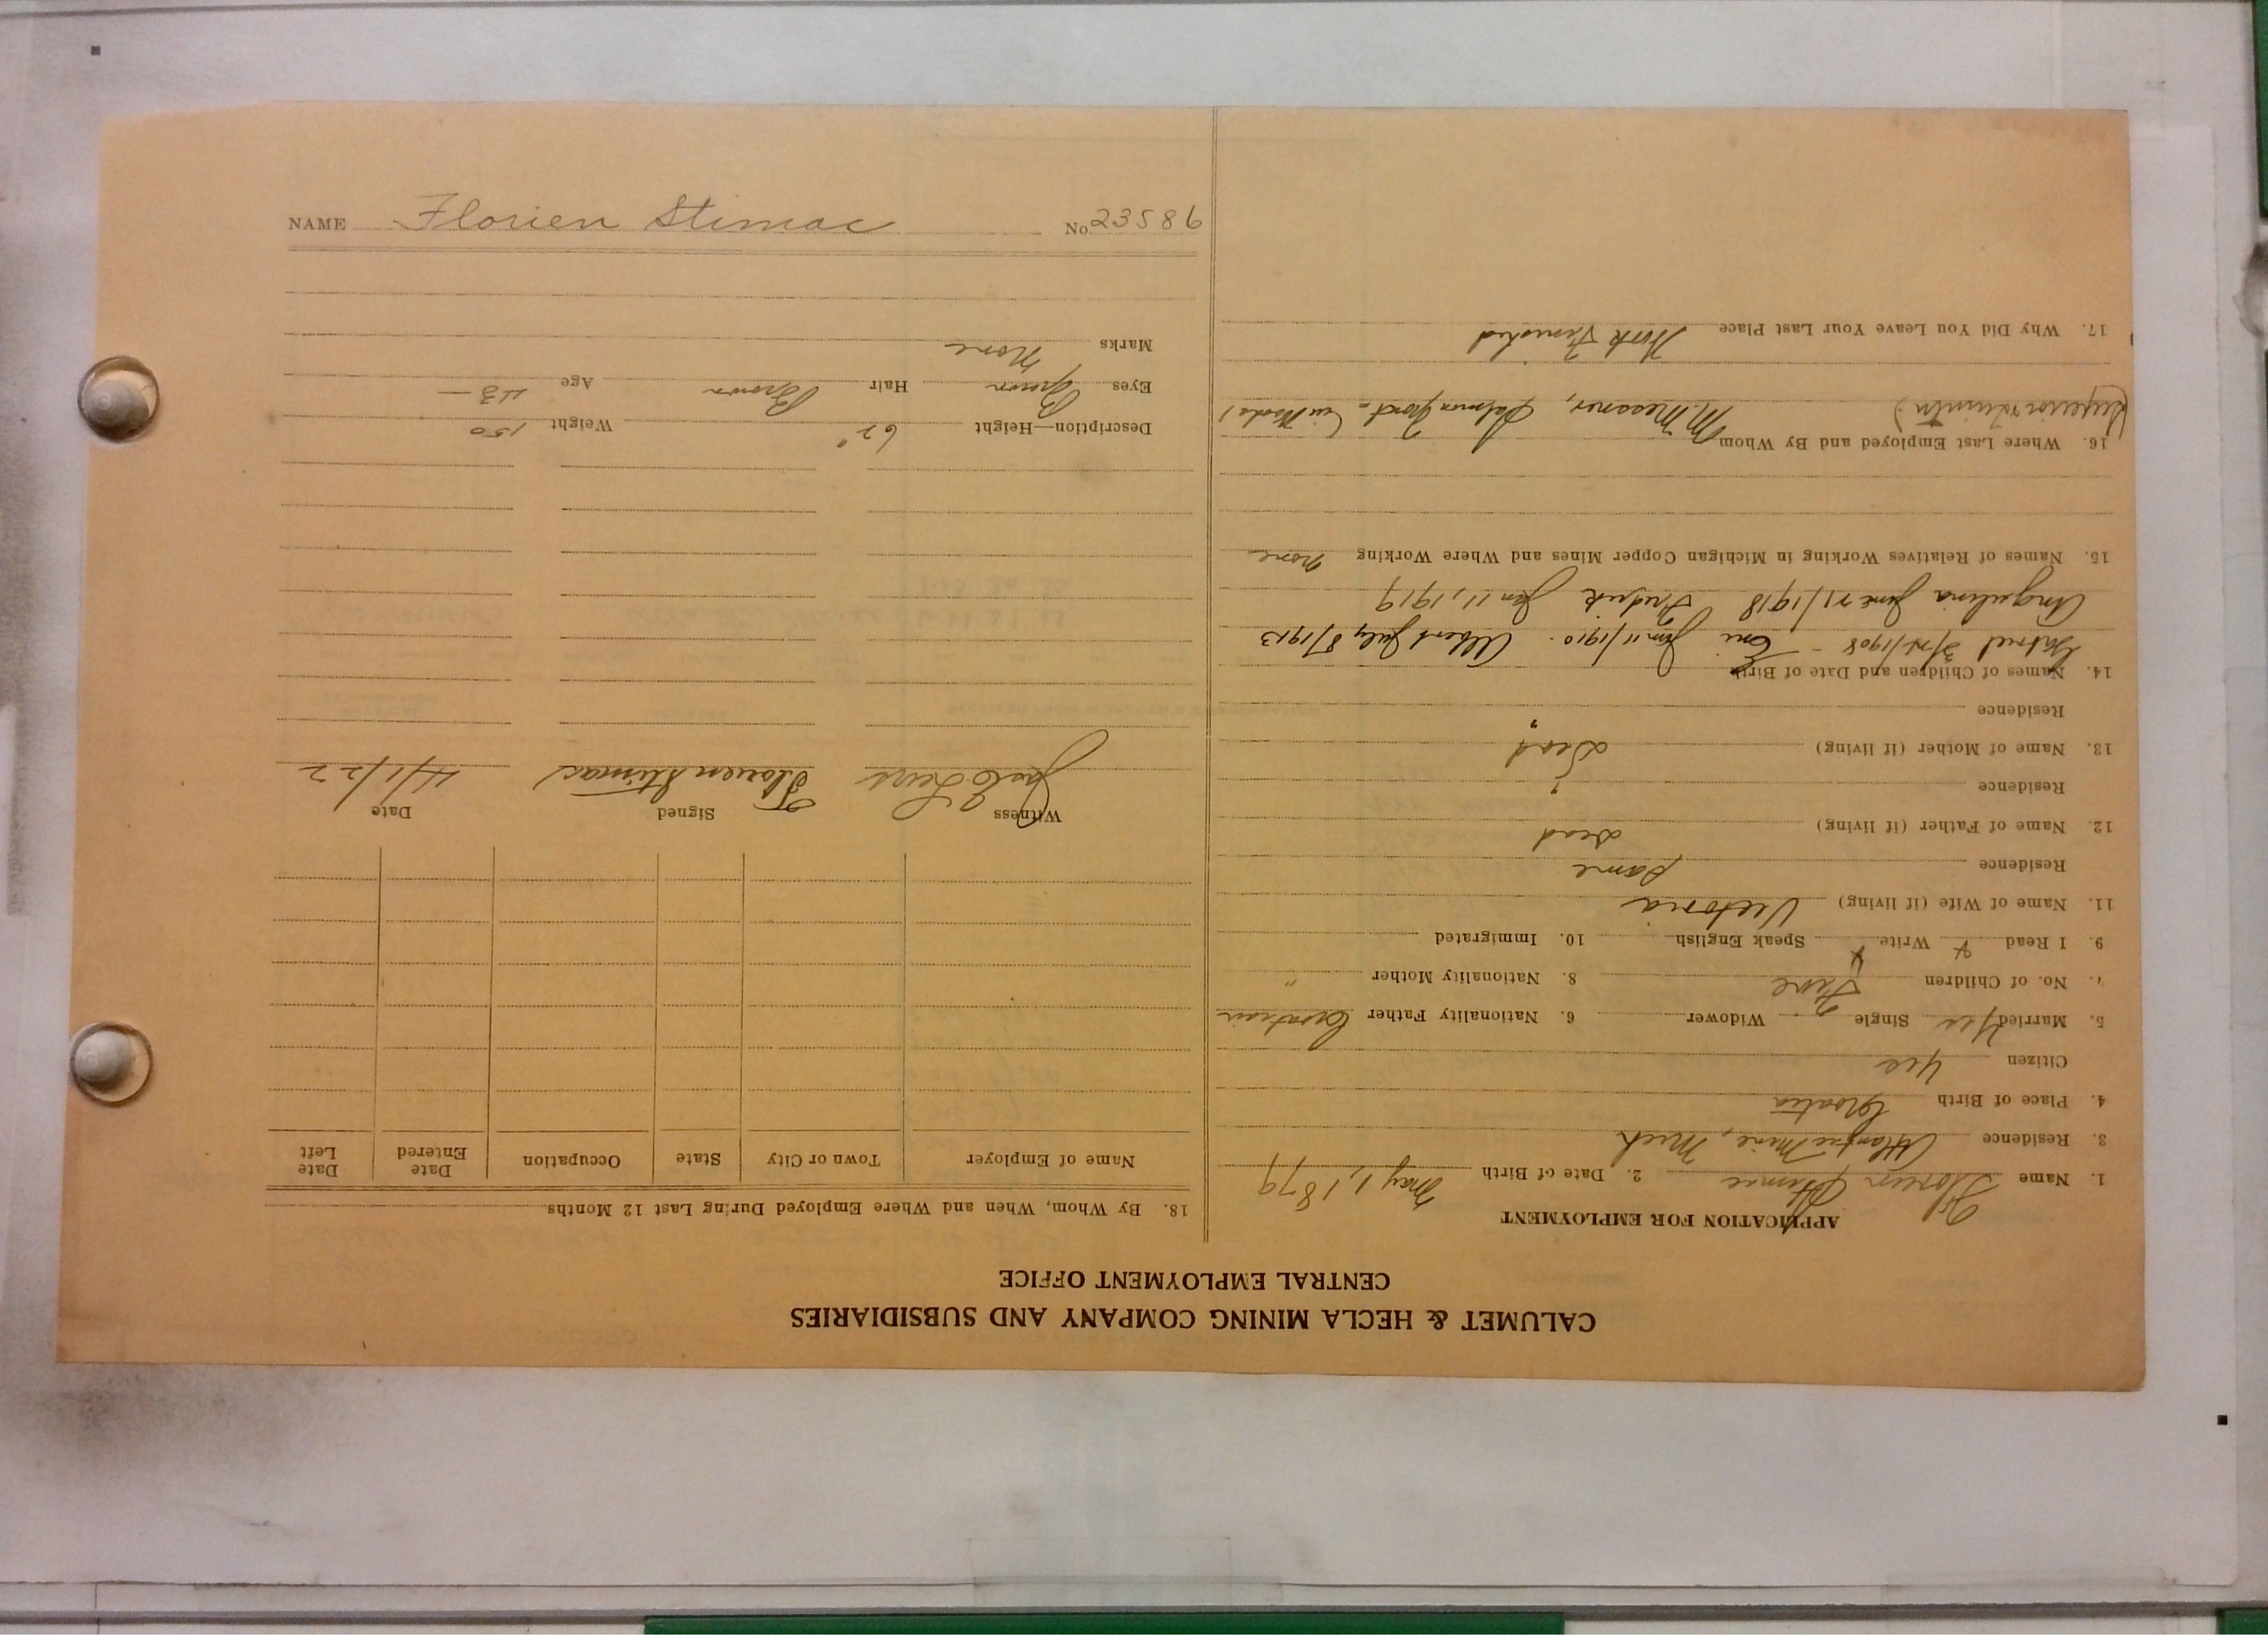 CALUMET & HECLA MINING COMPANY AND SUBSIDIARIES
CENTRAL EMPLOYMENT OFFICE
APPLICATION FOR EMPLOYMENT
1. Name Florien Stimac 2. Date of Birth May 1, 1879
3. Residence Atlantic Mine, Mich
4. Place of Birth Croatia
Citizen Yes
5. Married Yes Single Widower 6. Nationality Father Croatian
7. No. of Children Five 8. Nationality Mother "
9. I Read Write Speak English 10. Immigrated
11. Name of Wife (if living) Victoria
Residence Same
12. Name of Father (if living) Dead
Residence
13. Name of Mother (if living) Dead
Residence
14. Names of Children and Date of Birth
1908 - Jan 11/1910. Albert July 8/1913
Angelina June 21/1918 Fredrick Jan 11, 1919
15. Names of Relatives Working in Michigan Copper Mines and Where Working None
16. Where Last Employed and By Whom M. Messner, (in Woods)
17. Why Did You Leave Your Last Place Work Finished
18. By Whom, When and Where Employed During Last 12 Months
Name of Employer Town or City State Occupation Date Entered Date Left
Witness Signed Date
Florien Stimac 4/1/22
Description—Height 62" Weight 150
Eyes Brown Hair Brown Age 43
Marks None
NAME Florien Stimac No. 23586